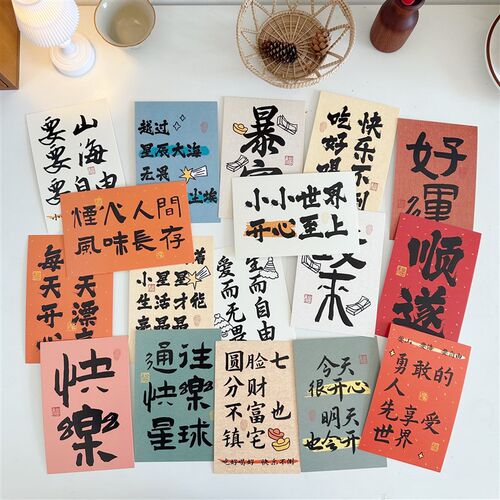 山海自由
要要要
越过
星辰大海
无畏
尘埃
暴富
快乐不倒
吃好喝
好運
煙火人間
風味長存
小小世界
开心至上
天漂亮
每天开
生而自由
爱而无畏
来
顺遂
快樂
通往
快樂
星球
七也
脸财富宅
圆分不镇
吃好喝好 快乐不倒
今天
很开心
明天
也会开
勇敢的
人
先享受
世界